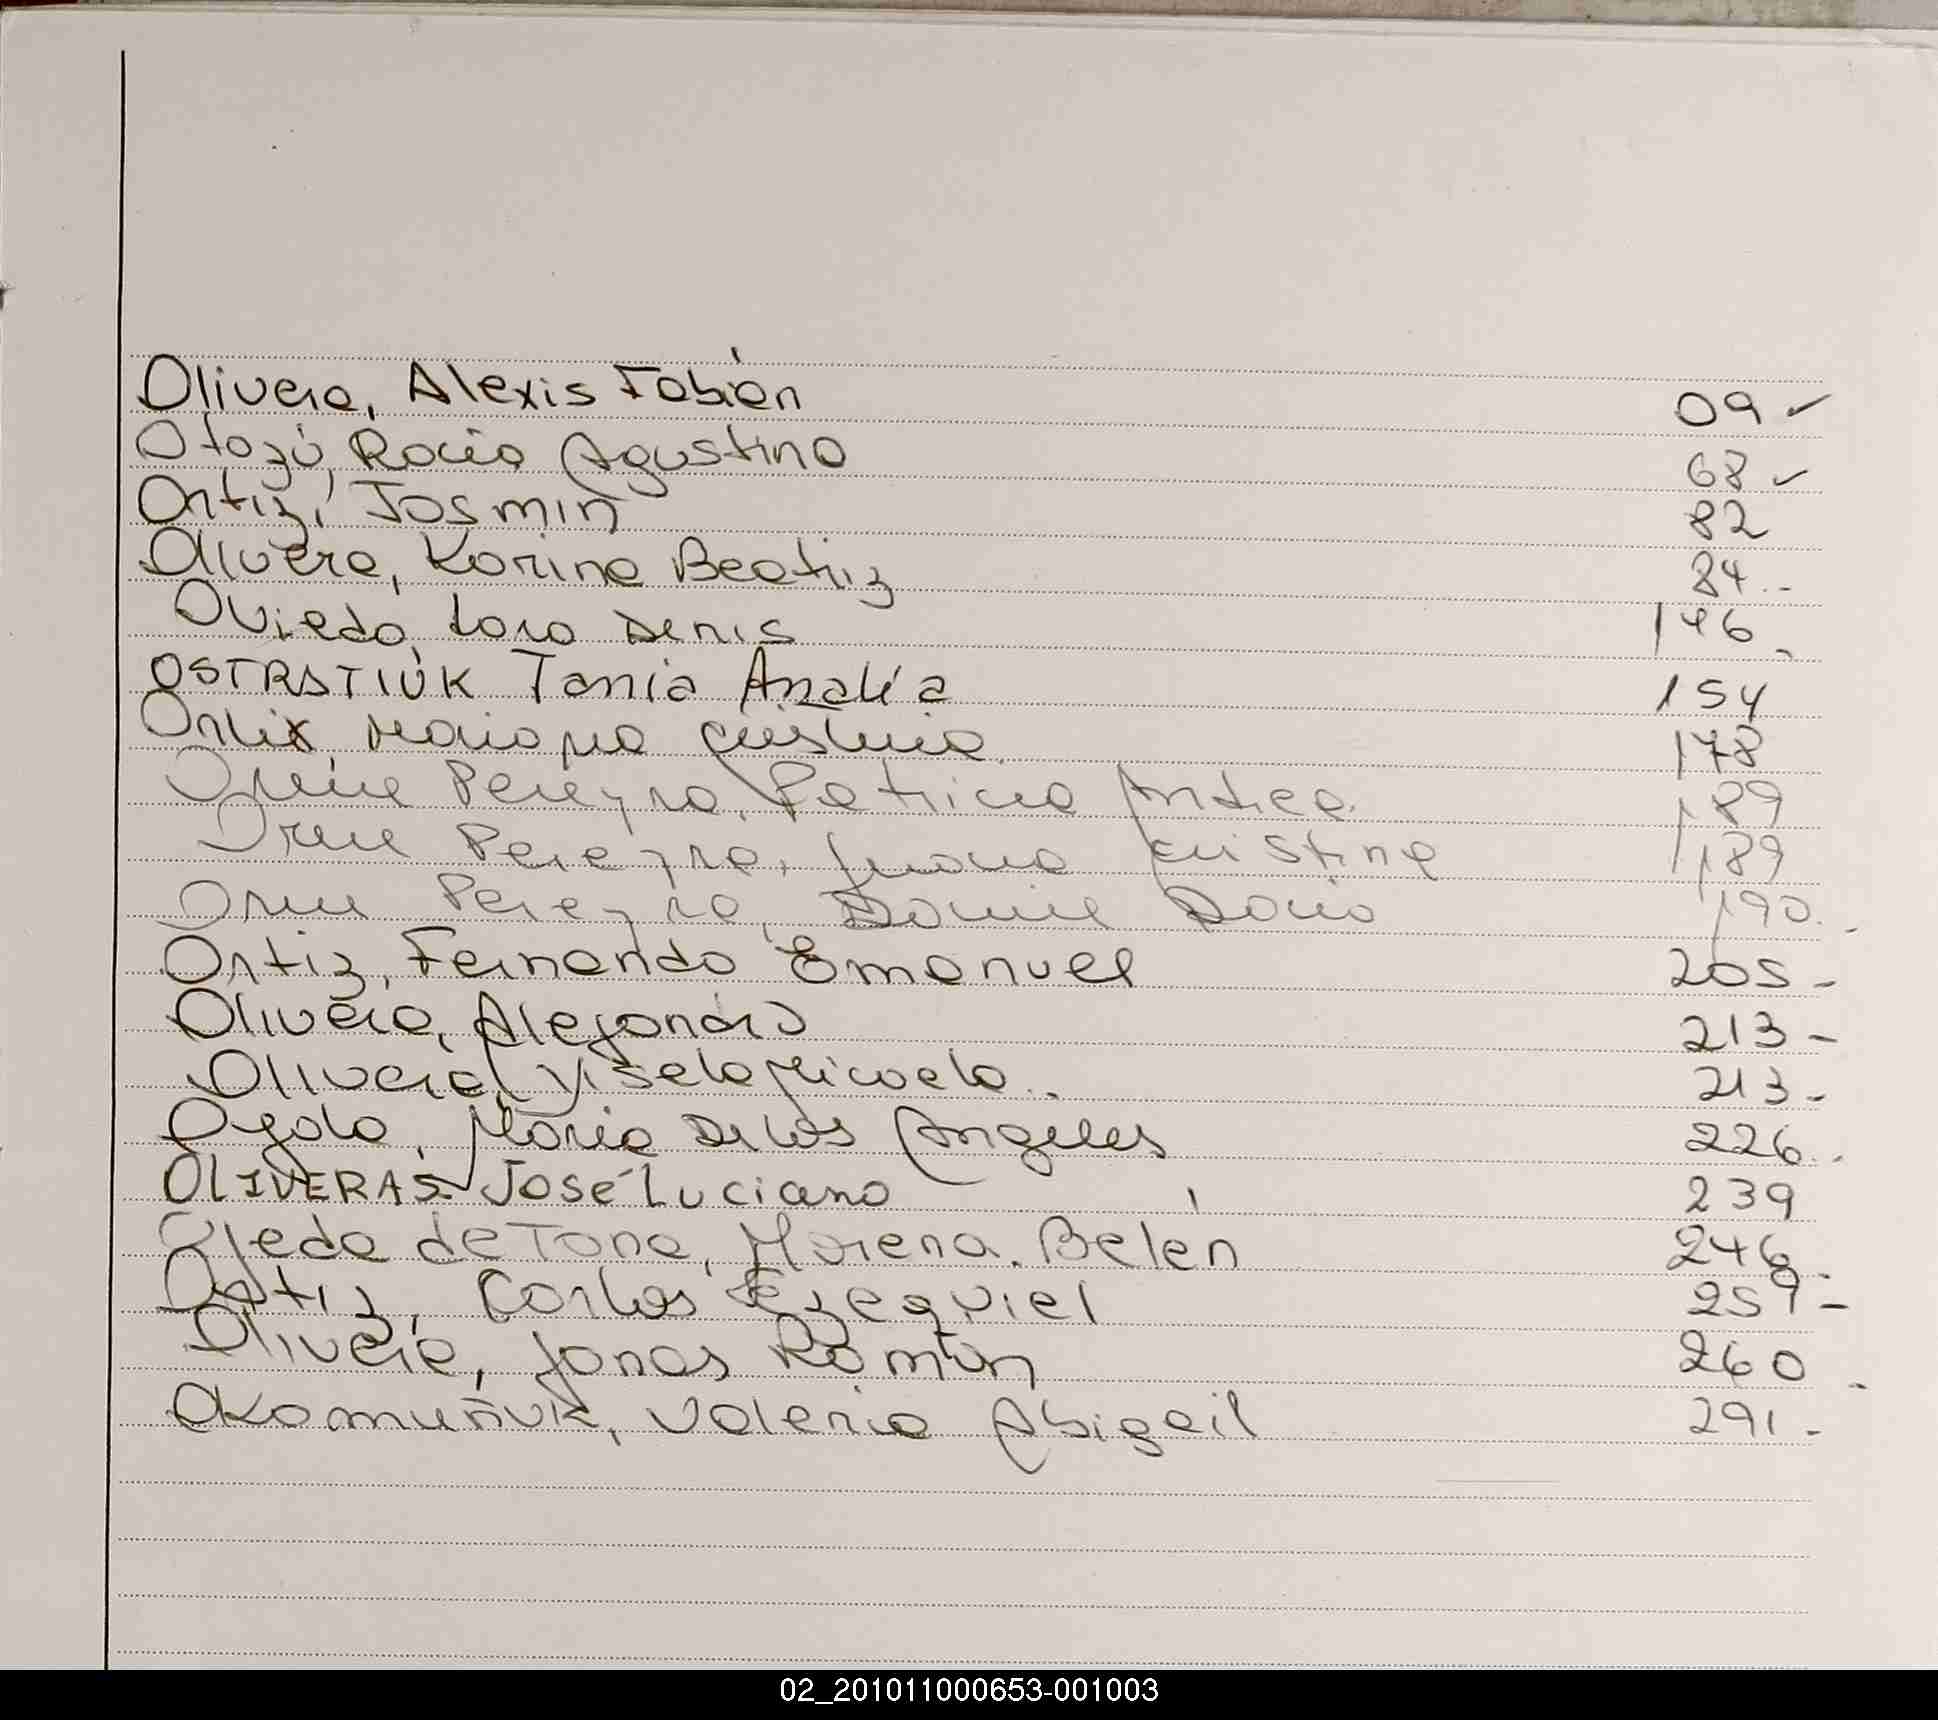 Olivera, Alexis Fabián 09
Otazú, Rocio Agustina 68
Ortiz, Jasmin 82
Olivera, Karina Beatriz 84
Oviedo, Lara Denis 146
OSTRSTIUK Tania Analía 154
Ortiz, Mariana Cristina 178
Pereyra, Patricia Andrea 189
Pereyra, Juana Cristina 189
Pereyra, Dario 190
Ortiz, Fernando Emanuel 205
Olivera, Alejandro 213
Olivera, Yisela Micaela 213
Oyola, María De Los Angeles 226
OLIVERAS José Luciano 239
Ojeda de Tone, Morena Belén 246
Ortiz, Carlos Ezequiel 259
Olivera, Jonas Román 260
Okomuñuk, Valeria Abigail 291
02_201011000653-001003